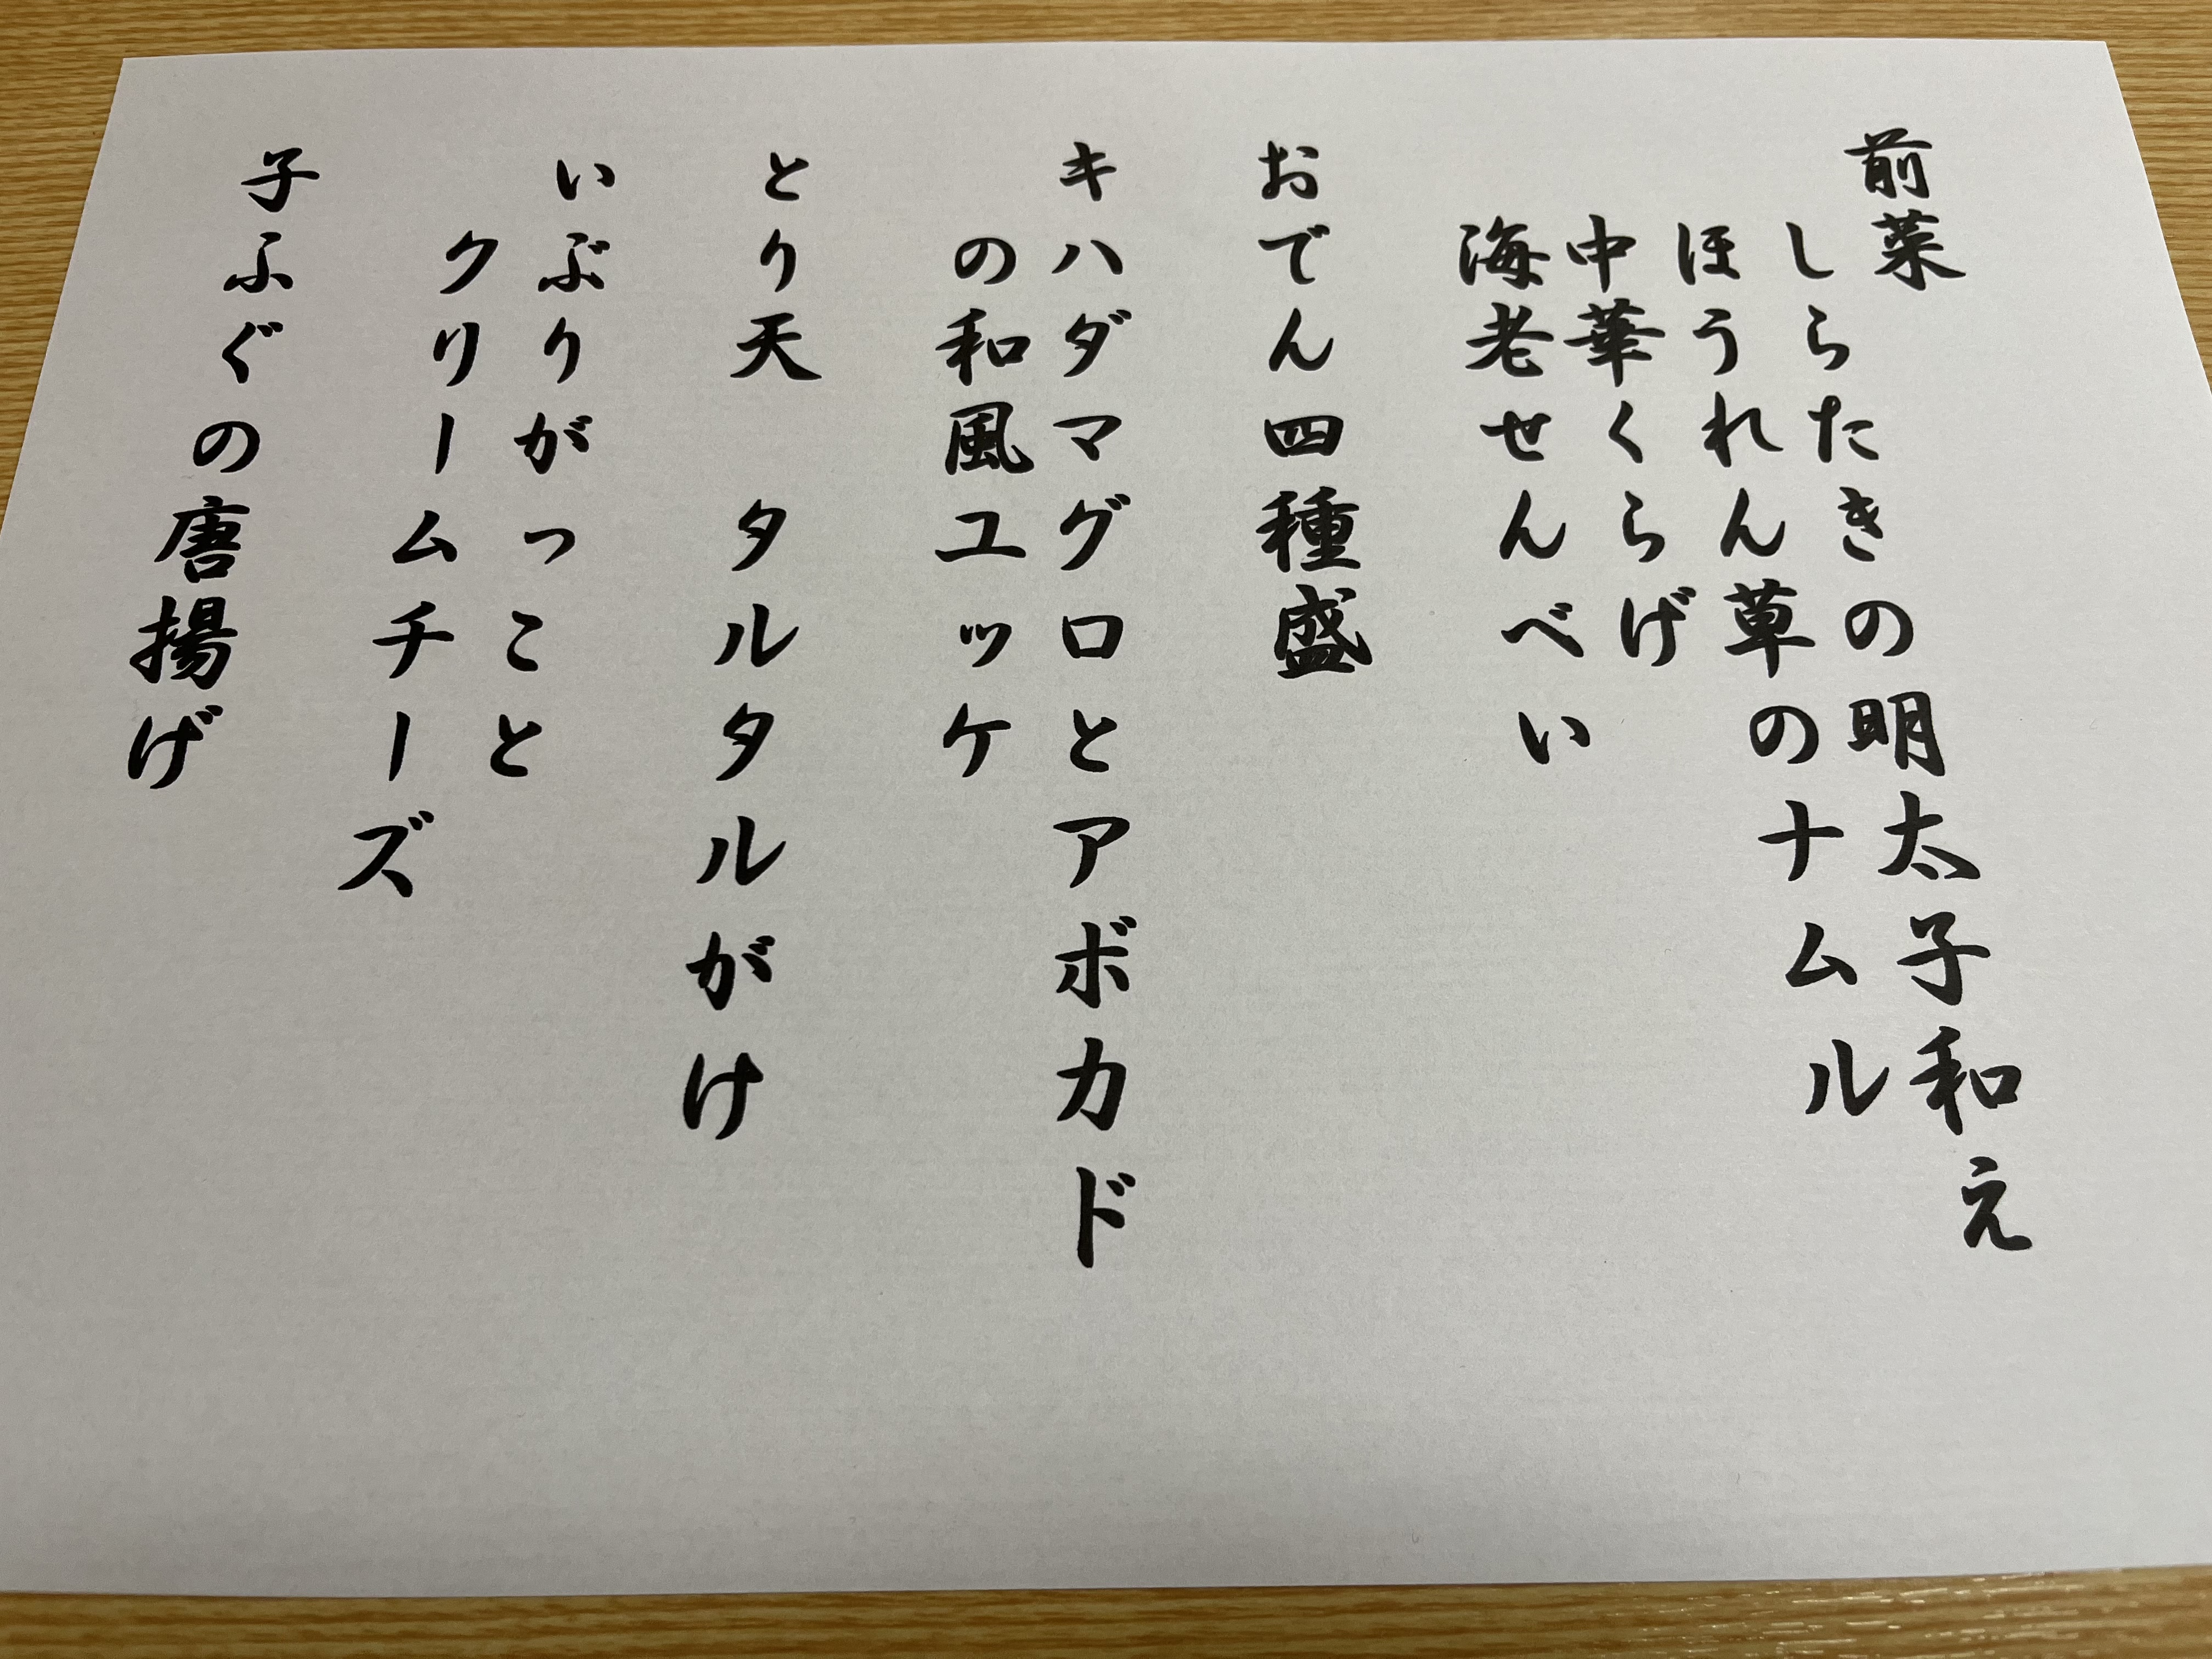 前菜
しらたきの明太子和え
ほうれん草のナムル
中華くらげ
海老せんべい
おでん四種盛
キハダマグロとアボカド
の和風ユッケ
とり天　タルタルがけ
いぶりがっこと
クリームチーズ
子ふぐの唐揚げ